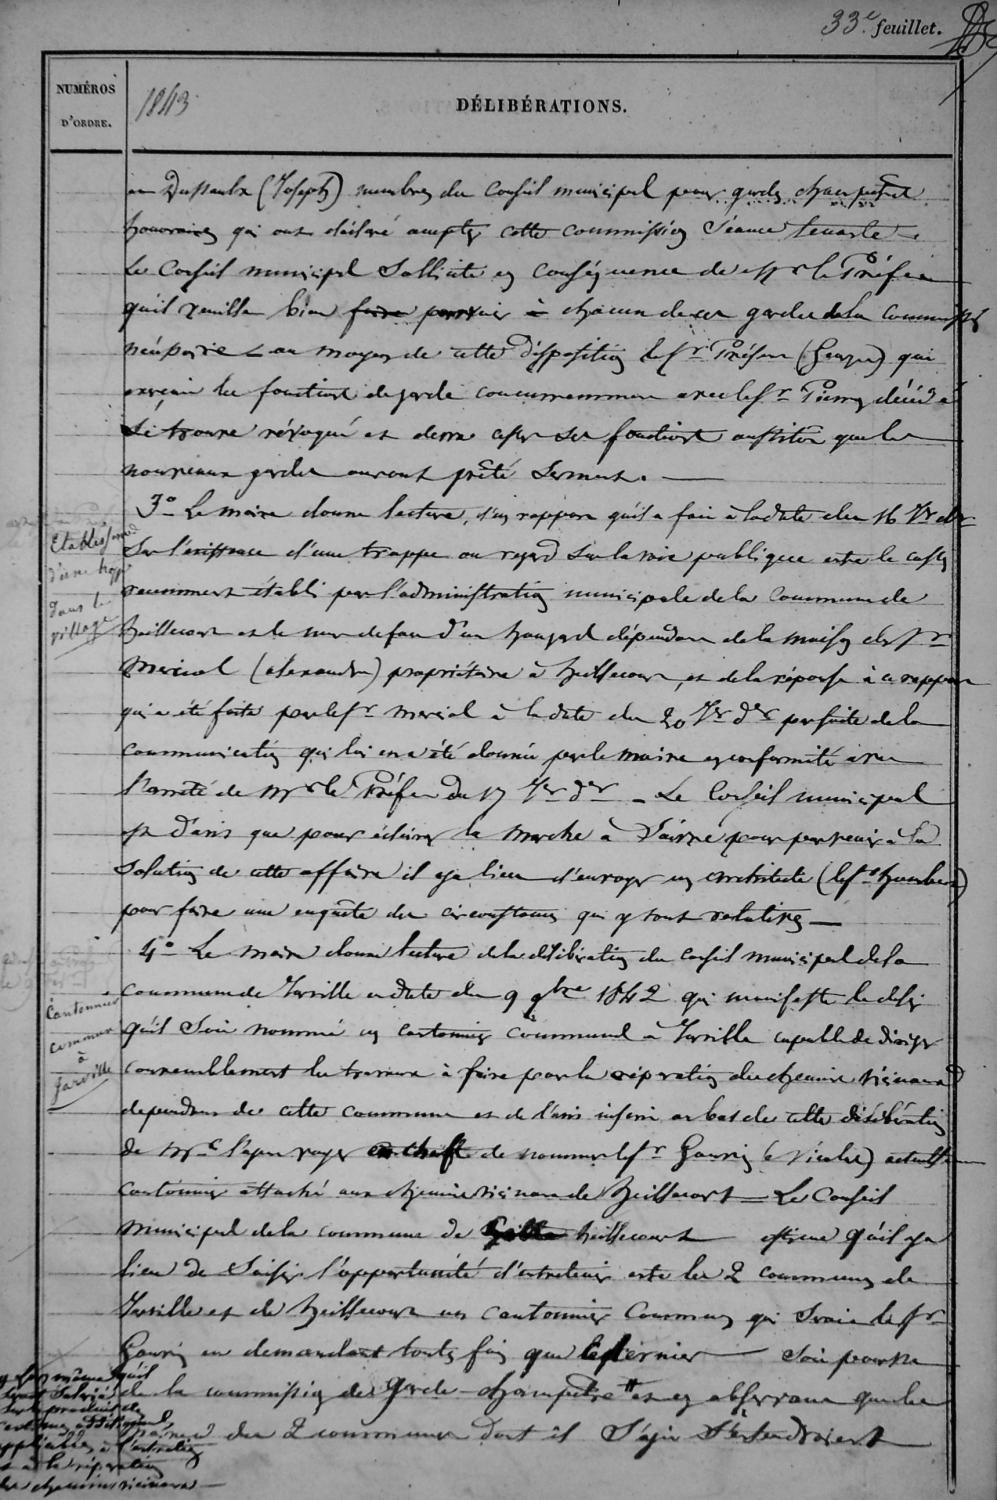 33e feuillet.
NUMÉROS
D'ORDRE.
1843
DÉLIBÉRATIONS.
(Joseph) membres du Conseil municipal pour gardes champêtres
honoraires qui ont déclaré accepter cette commission séance tenante.
Le Conseil municipal sollicite en conséquence de Mr le Préfet
qu'il veuille bien faire parvenir à chacun de ces gardes de la commission
nécessaire au moyen de cette disposition le Sr (Georges) qui
exerçait les fonctions de garde concurremment avec le Sr décédé
se trouve révoqué et devra cesser ses fonctions aussitôt que les
nouveaux gardes auront prêté serment.
Etablissement
d'une trappe
dans le
village
3o Le maire donne lecture, d'un rapport qu'il a fait à la date du 16 der
sur l'existence d'une trappe ou regard sur la voie publique entre le
récemment établi par l'administration municipale de la Commune de
heillecourt et le mur de face d'un hangard dépendant de la maison du Sr
(alexandre) propriétaire à heillecourt, et de la réponse à ce rapport
qui a été faite par le Sr à la date du 20 der par suite de la
communication qui lui en a été donnée par le maire en conformité avec
l'arrêté de Mr le Préfet du 17 der - Le Conseil municipal
est d'avis que pour éclairer la marche à suivre pour parvenir à la
solution de cette affaire il y a lieu d'envoyer un architecte (le Sr humbert)
pour faire une enquête des circonstances qui y sont relatives —
Cantonnier
commun
à
Jarville
4o Le maire donne lecture de la délibération du conseil municipal de la
commune de Jarville en date du 9 9bre 1842 qui manifeste le désir
qu'il soit nommé un cantonnier commun à Jarville capable de diriger
convenablement les travaux à faire pour la réparation des chemins vicinaux
dependans de cette commune et de l'avis inséré au bas de cette délibération
de Mr l'agent voyer en chef de nommer le Sr (Nicolas) actuellement
cantonnier attaché aux chemins vicinaux de heillecourt — Le Conseil
municipal de la commune de heillecourt estime qu'il y a
lieu de saisir l'opportunité d'entretenir entre les 2 communes de
Jarville et de heillecourt un cantonnier commun qui serait le Sr
en demandant toutes fois que ce dernier soit pourvu
de la commission de Garde-champêtre # et en observant que les
maires des 2 communes dont il s'agit s'entendroient
# même qu'il
soit salarié
sur le produit des
centimes additionnels
applicables à l'entretien
et à la réparation
des chemins vicinaux —